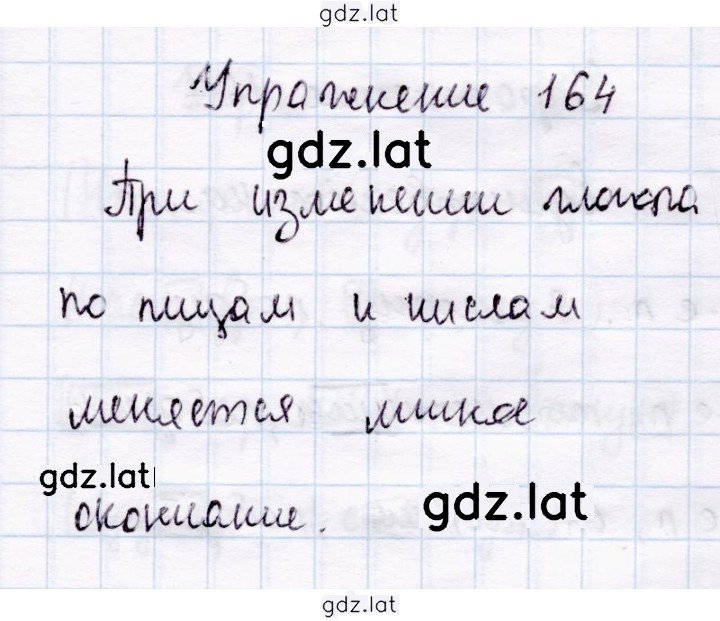 gdz.lat
Упражнение 164
gdz.lat
При изменении глагола
по лицам и числам
меняется личное
gdz.lat
окончание.
gdz.lat
gdz.lat